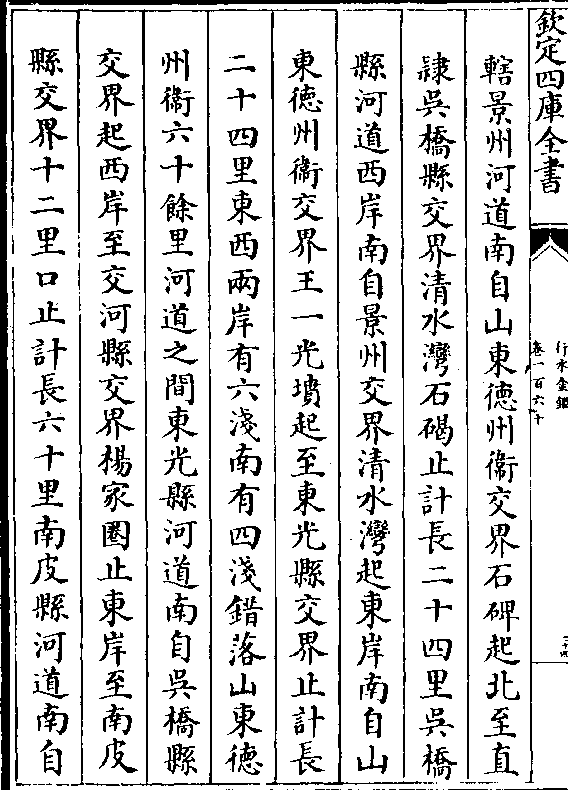 欽定四庫全書
行水金鑑
卷一百六十
三十四
轄景州河道南自山東德州衞交界石碑起北至直
隸吳橋縣交界清水灣石碣止計長二十四里吳橋
縣河道西岸南自景州交界清水灣起東岸南自山
東德州衞交界王一光墳起至東光縣交界止計長
二十四里東西兩岸有六淺南有四淺錯落山東德
州衞六十餘里河道之間東光縣河道南自吳橋縣
交界起西岸至交河縣交界楊家圏止東岸至南皮
縣交界十二里口止計長六十里南皮縣河道南自